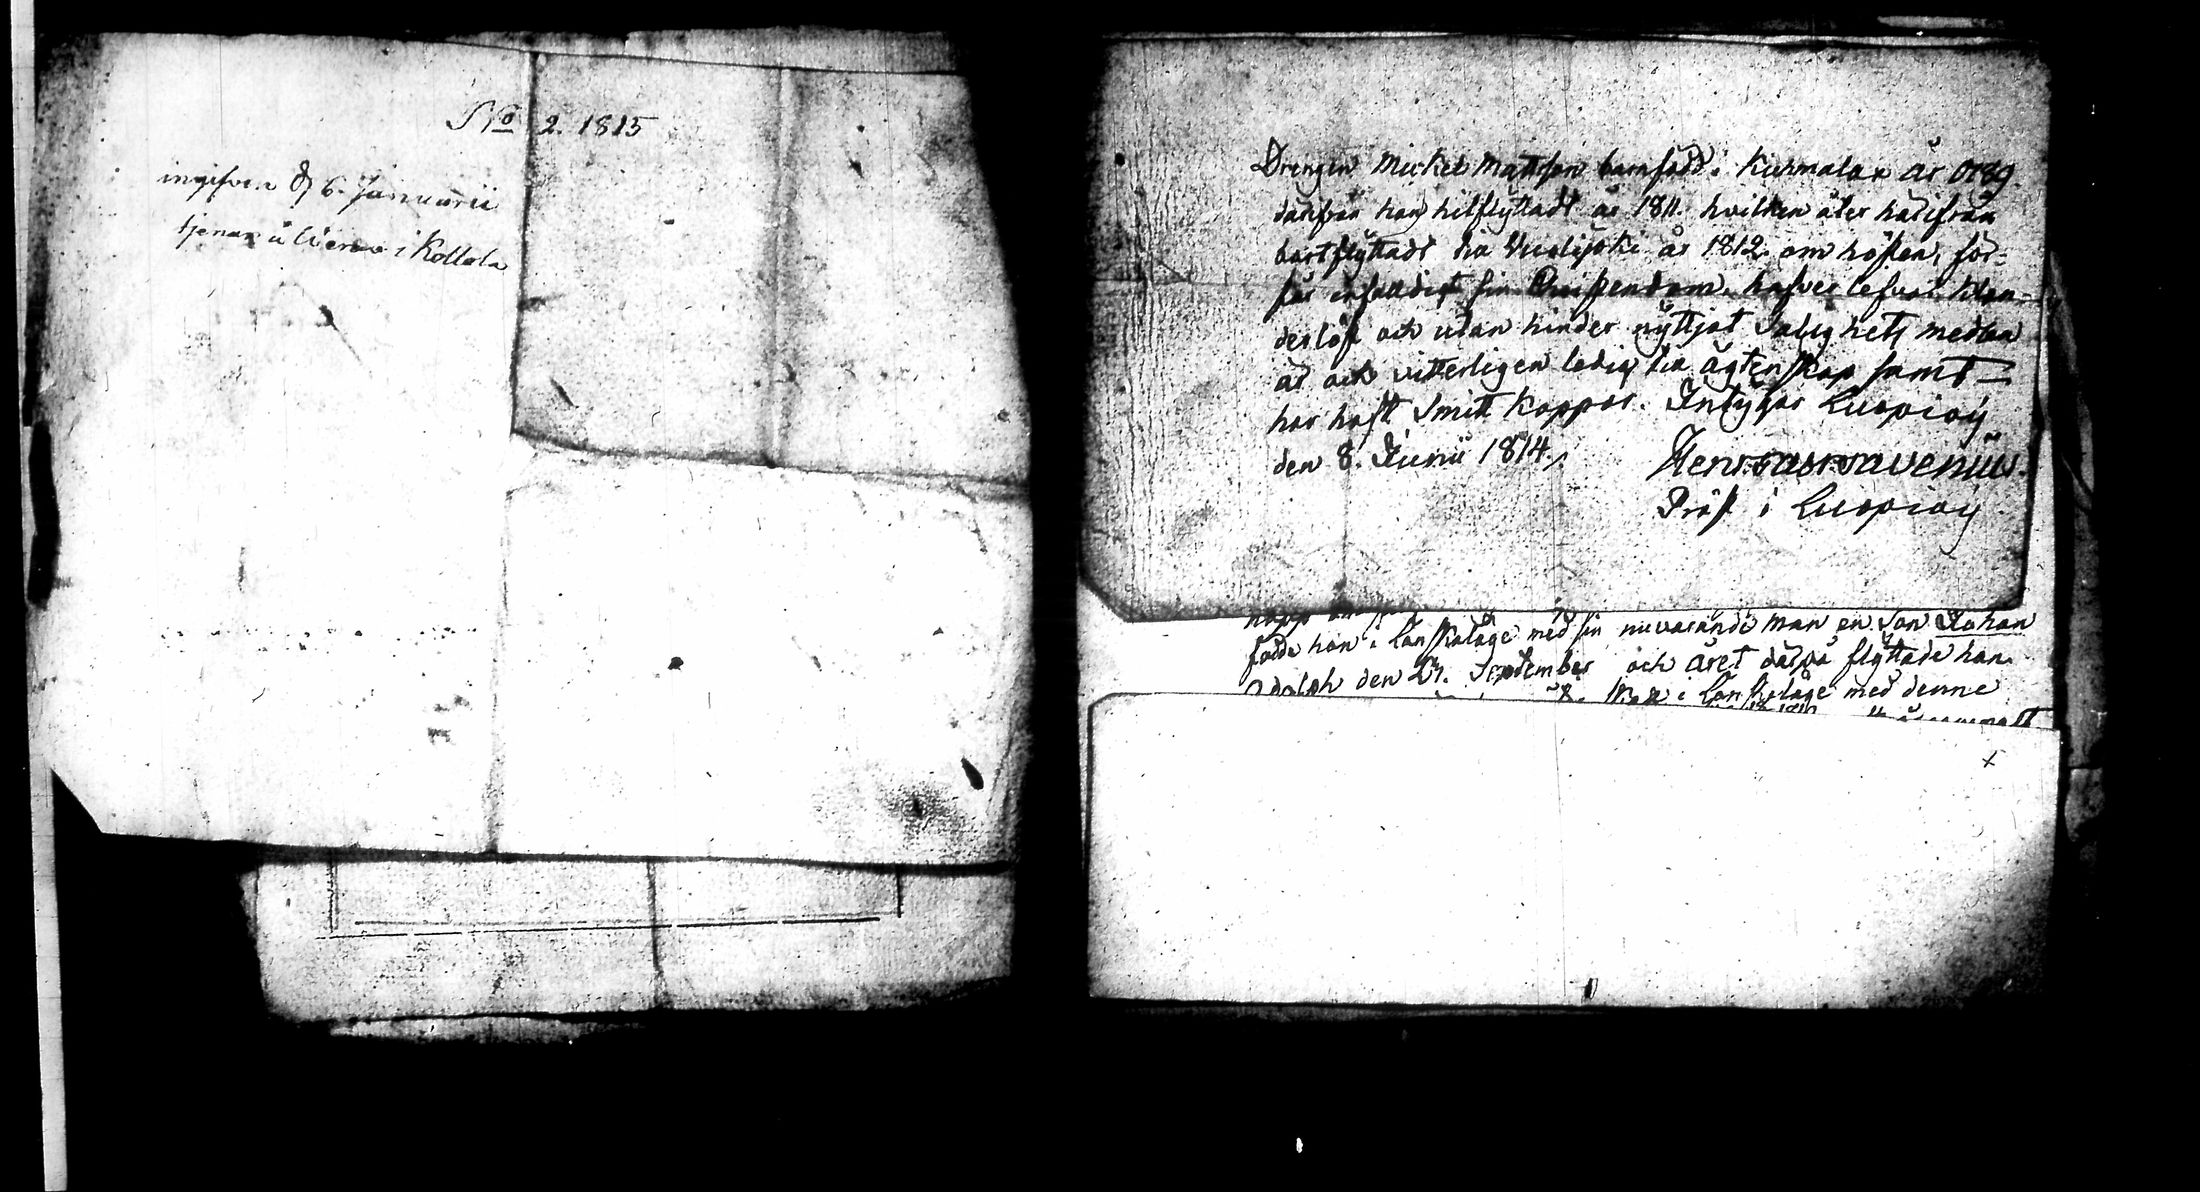 No 2. 1815
ingifven d 6. Januarii
tjenar å i Kollola
Drengen Mickel Mattsson barnfödd i Kuhmalax år 1789
därifrån han hitflyttadt år 1811. hvilken åter härifrån
bortflyttadt til år 1812. om hösten, för-
står enfalldigt sin Christendom, hafver lefvat klan-
derlöst och utan hinder nyttjat Salighets medlen
är och vitterligen ledig til ägtenskap samt
har haft Smitt Koppor. Intygar Luopioij
den 8. Junii 1814.
Präst i Luopioij
födde hon i Lanskaloge med sin nuvarande man en Son Johan
Adolph den 27. September och året därpå flyttade han
i Lanskaloge med denne